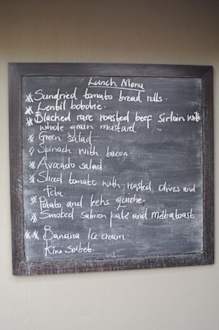 Lunch Menu
Sundried tomato bread rolls.
Lentil bobotie.
Blacked rare roasted beef sirloin with
whole grain mustard
Green salad
Spinach with bacon
Avocado salad
Sliced tomato with roasted olives and
Feta
Potato and quiche
Smoked Salmon and Melba toast
Banana Ice cream
Kiwi Sorbet